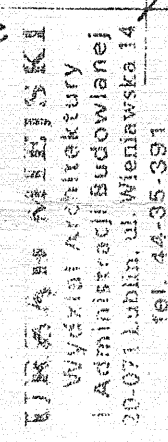 URZĄD MIEJSKI
Wydział Architektury
i Administracji Budowlanej
20-071 Lublin, ul. Wieniawska 14
tel. 44-35-391